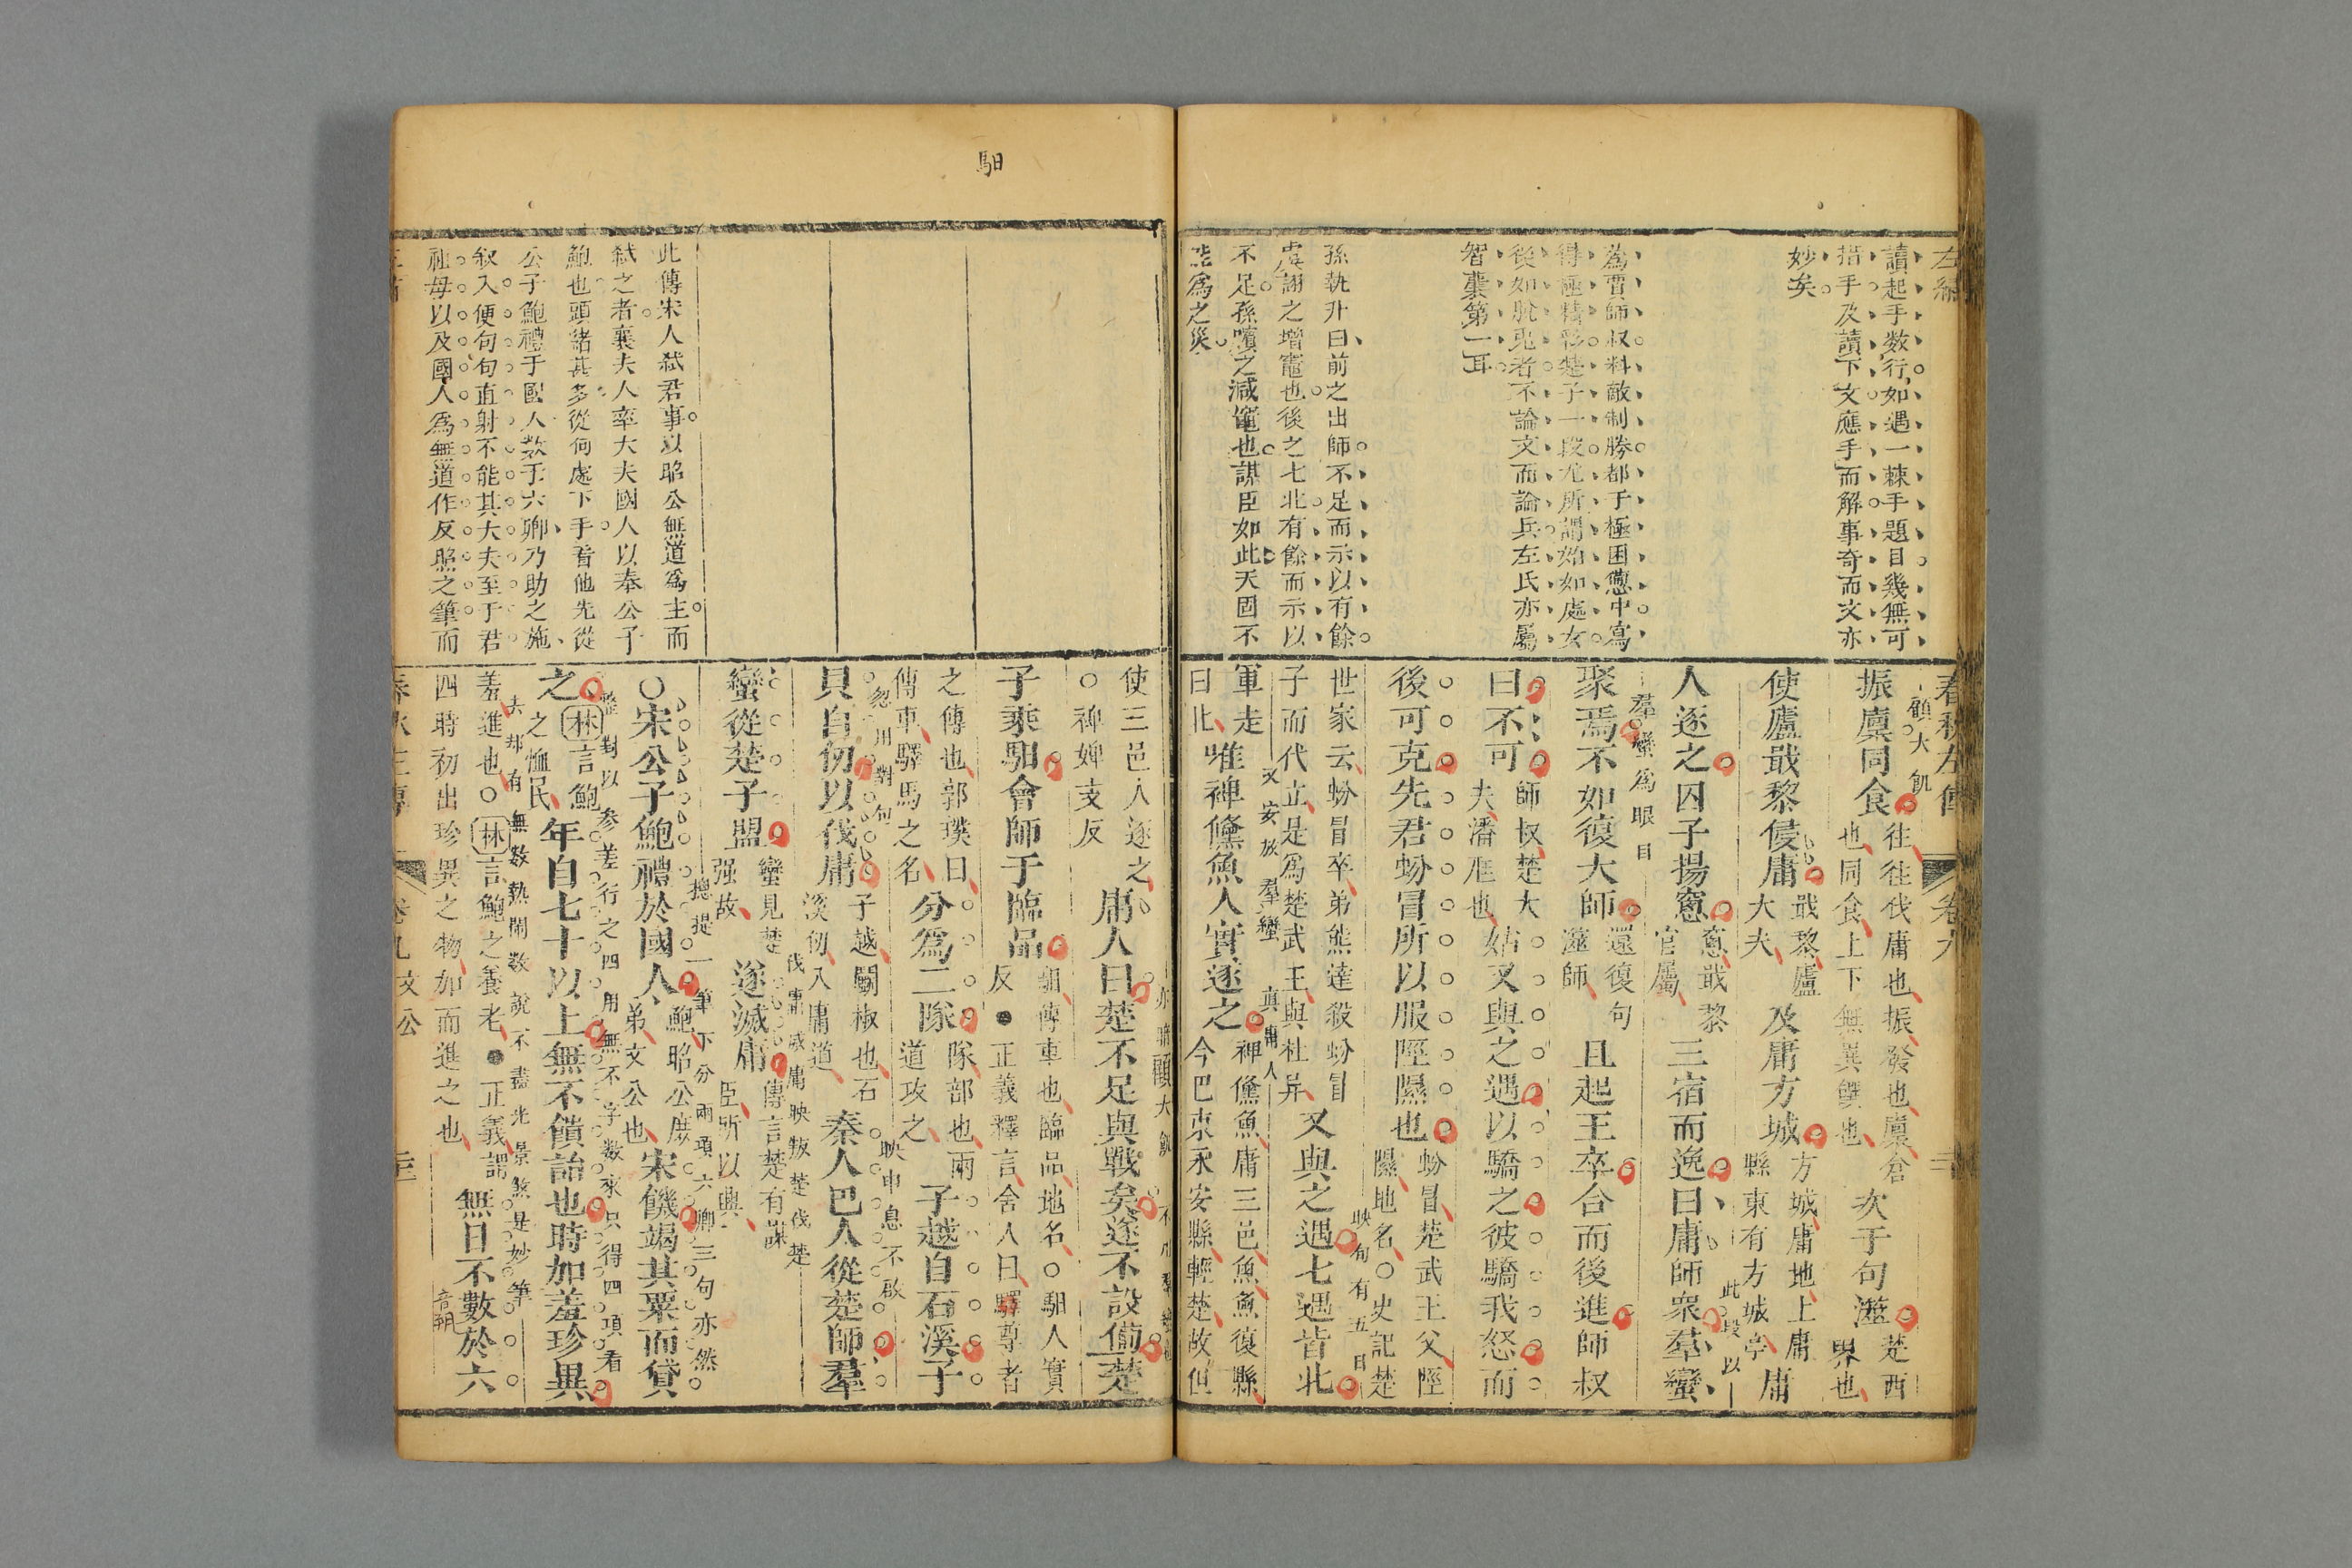 讀起手数行如遇一棘手題目幾無可
措手及讀下文應手而解事奇而文亦
妙矣
爲賈師叔料敵制勝都于極困憊中寫
得極精彩楚子一段尤所謂始如處女
後如脫兎者不論文而論兵左氏亦屬
智囊第一耳
孫執升曰前之出師不足而示以有餘
虞詡之增竈也後之七北有餘而示以
不足孫臏之減竈也謀臣如此天固不
爲之災
春秋左傳 卷九
顧大飢
振廩同食
往往伐庸也振發也廩倉
也同食上下無異饌也
次于句澨
楚西
界也
使廬戢黎侵庸
戢黎廬
大夫
及庸方城
方城庸地上庸
縣東有方城亭
庸
人逐之囚子揚窻
窻戢黎
官屬
三宿而逸曰庸師衆羣蠻
此段以
羣蠻爲眼目
聚焉不如復大師
還復句
澨師
且起王卒合而後進師叔
曰不可
師叔楚大
夫潘尫也
姑又與之遇以驕之彼驕我怒而
後可克先君蚡冒所以服陘隰也
蚡冒楚武王父陘
隰地名○史記楚
世家云蚡冒卒弟熊達殺蚡冒
子而代立是爲楚武王與杜异
又與之遇七遇皆北
映句有五日
軍走
曰北
又安放羣蠻
唯裨鯈魚人實逐之
眞庸人
裨鯈魚庸三邑魚魚復縣
今巴東永安縣輕楚故但
使三邑人逐之
○裨婢支反
庸人曰楚不足與戰矣遂不設備楚
子乘馹會師于臨品
馹傳車也臨品地名○馹人實
反●正義釋言舍人曰驛尊者
之傳也郭璞曰
傳車驛馬之名
分爲二隊
隊部也兩
道攻之
子越自石溪子
映申息不啟
忽用對句
貝自仞以伐庸
子越鬭椒也石
溪仞入庸道
秦人巴人從楚師羣
蠻從楚子盟
蠻見楚
强故
伐庸滅庸映叛楚伐楚
遂滅庸
傳言楚有謀
臣所以興
總提一筆下分兩項六卿三句亦然
○宋公子鮑禮於國人
鮑昭公庶
弟文公也
宋饑竭其粟而貸
整對以参差行之四用無不字数來只得四項看
之
林言鮑
之恤民
年自七十以上無不饋詒也時加羞珍異
去却有無数熱閙数說不盡光景煞是妙筆
羞進也○林言鮑之養老●正義謂
四時初出珍異之物加而進之也
無日不數於六
音朔
馹
此傳宋人弑君事以昭公無道爲主而
弑之者襄夫人率大夫國人以奉公子
鮑也頭緒甚多從何處下手看他先從
公子鮑禮于國人数于六卿乃助之施
叙入便句句直射不能其大夫至于君
祖母以及國人爲無道作反照之筆而
文公